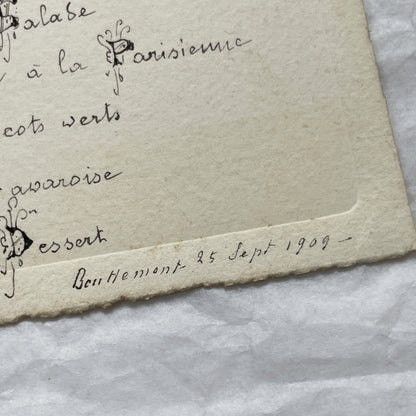 Salade
à la Parisienne
cots werts
avaroise
Dessert
Bouttemont 25 Sept 1909